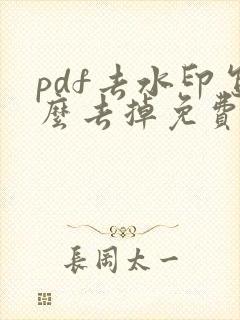 pdf去水印怎
麼去掉免費
長周太一